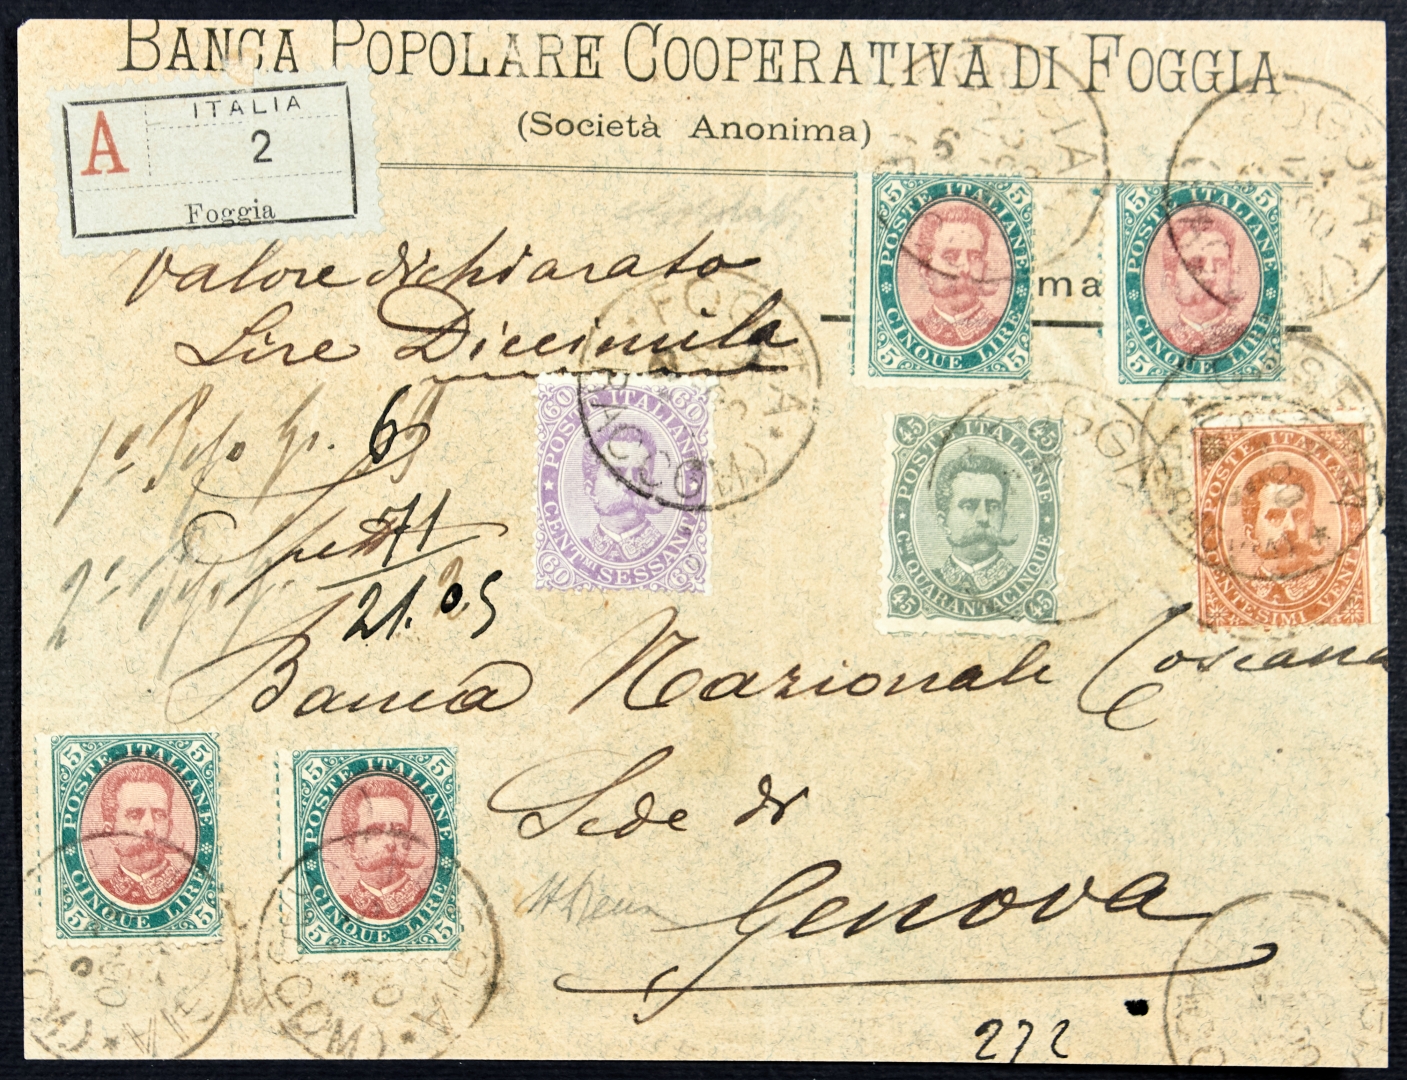 BANCA POPOLARE COOPERATIVA DI FOGGIA
(Società Anonima)
ITALIA
A 2
Foggia
Valore dichiarato
Lire Diecimila
ma
POSTE ITALIANE
5 5
CINQUE LIRE
5 5
POSTE ITALIANE
5 5
CINQUE LIRE
5 5
FOGGIA
RACCOM
POSTE ITALIANE
60 60
CENTMI SESSANTA
60 60
POSTE ITALIANE
45 45
CMI QUARANTACINQUE
45 45
POSTE ITALIANE
CENTESIMI VENTI
6
71
21.05
Banca Nazionale Toscana
Sede di
Genova
POSTE ITALIANE
5 5
CINQUE LIRE
5 5
POSTE ITALIANE
5 5
CINQUE LIRE
5 5
272